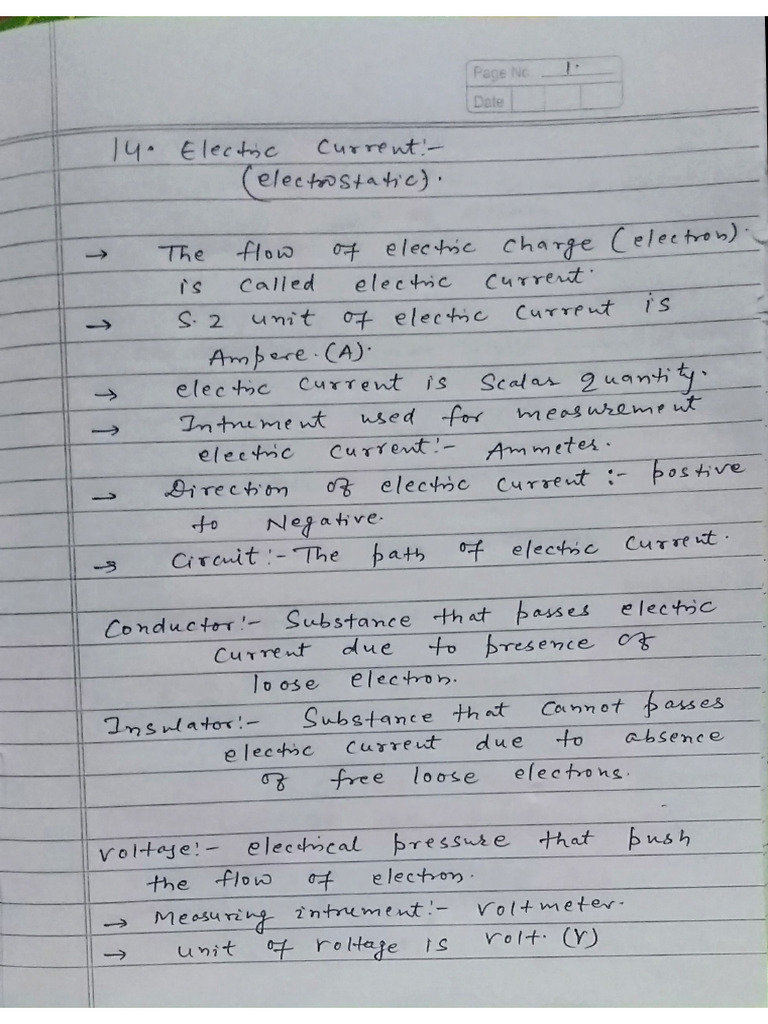 Page No. 1.
Date
14. Electric Current:-
(electrostatic).
→ The flow of electric charge (electron).
is called electric current.
→ S.I unit of electric current is
Ampere.(A).
→ electric current is Scalar quantity.
→ Intrument used for measurement
electric current:- Ammeter.
→ Direction of electric current :- postive
to Negative.
→ Circuit:- The path of electric current.
Conductor:- Substance that passes electric
current due to presence of
loose electron.
Insulator:- Substance that cannot passes
electric current due to absence
of free loose electrons.
Voltage:- electrical pressure that push
the flow of electron.
→ Measuring intrument:- voltmeter.
→ unit of voltage is volt. (V)